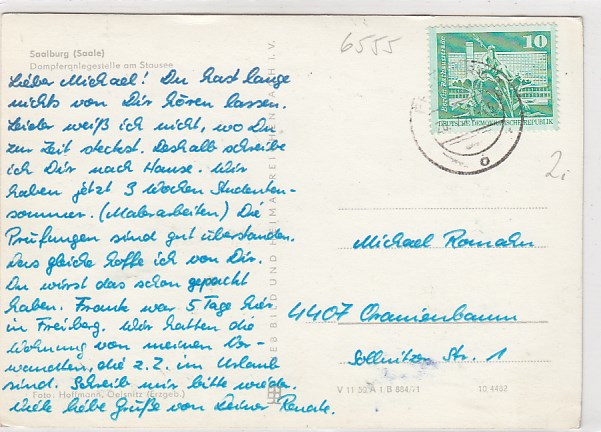 6555
Saalburg (Saale)
Dampferanlegestelle am Stausee
10
Berlin, Rathausstraße
DEUTSCHE DEMOKRATISCHE REPUBLIK
Lieber Michael! Du hast lange
nichts von Dir hören lassen.
Leider weiß ich nicht, wo Du
zur Zeit steckst. Deshalb schreibe
ich Dir nach Hause. Wir
haben jetzt 3 Wochen Studenten-
sommer. (Malerarbeiten) Die
Prüfungen sind gut überstanden.
Das gleiche hoffe ich von Dir.
Du wirst das schon gepackt
haben. Frank war 5 Tage hier
in Freiberg. Wir hatten die
Wohnung von meinen Ver-
wandten, die z.Z. im Urlaub
sind. Schreib mir bitte wieder.
Viele liebe Grüße von Deiner Renate.
Michael Romahn
4407 Oranienbaum
Sollnitzer Str. 1
Foto: Hoffmann, Oelsnitz (Erzgeb.)
V 11 50 A 1 B 884/71
10 4492